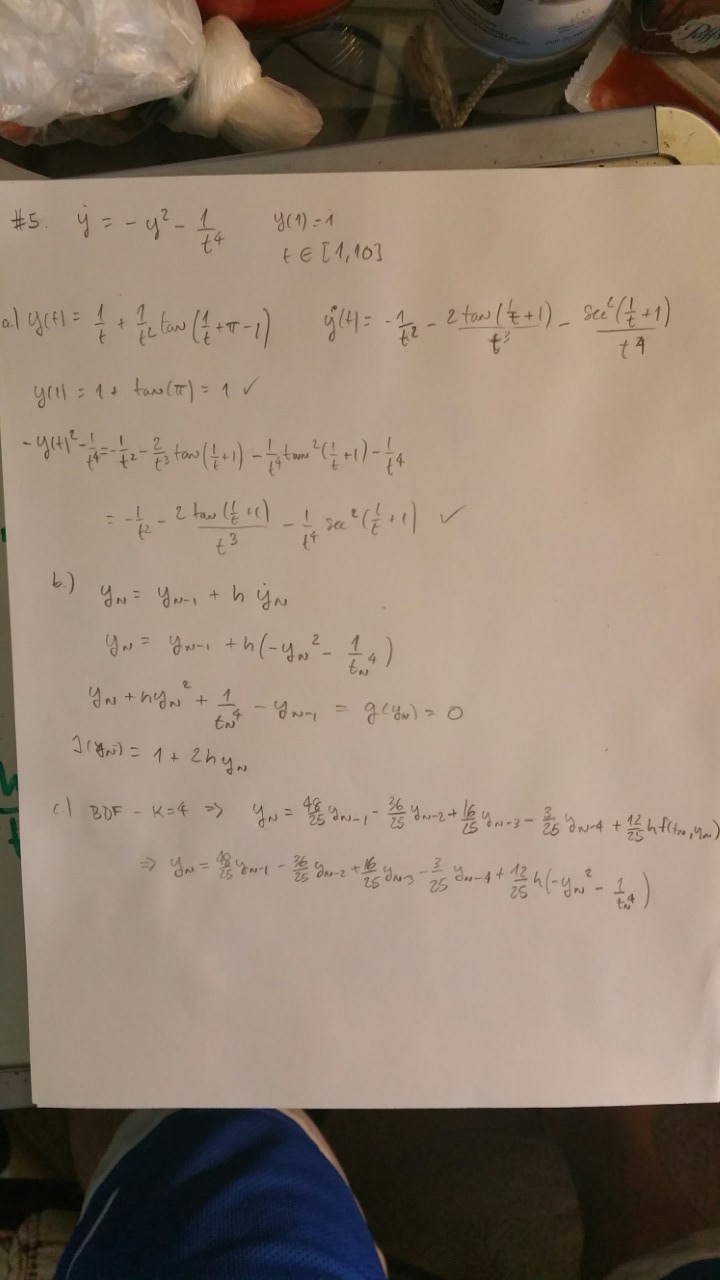 #5. ẏ = - y² - 1/t⁴ y(1) = 1
t ∈ [1,10]
a.) y(t) = 1/t + 1/t² tan(1/t + π - 1) ẏ(t) = -1/t² - 2tan(1/t + 1)/t³ - sec²(1/t + 1)/t⁴
y(1) = 1 + tan(π) = 1 ✓
-y(t)² - 1/t⁴ = -1/t² - 2/t³ tan(1/t + 1) - 1/t⁴ tan²(1/t + 1) - 1/t⁴
= -1/t² - 2 tan(1/t + 1)/t³ - 1/t⁴ sec²(1/t + 1) ✓
b.) yₙ = yₙ₋₁ + h ẏₙ
yₙ = yₙ₋₁ + h(-yₙ² - 1/tₙ⁴)
yₙ + hyₙ² + 1/tₙ⁴ - yₙ₋₁ = g(yₙ) = 0
J(yₙ) = 1 + 2hyₙ
c.) BDF - K=4 => yₙ = 48/25 yₙ₋₁ - 36/25 yₙ₋₂ + 16/25 yₙ₋₃ - 3/25 yₙ₋₄ + 12/25 hf(tₙ, yₙ)
=> yₙ = 48/25 yₙ₋₁ - 36/25 yₙ₋₂ + 16/25 yₙ₋₃ - 3/25 yₙ₋₄ + 12/25 h(-yₙ² - 1/tₙ⁴)